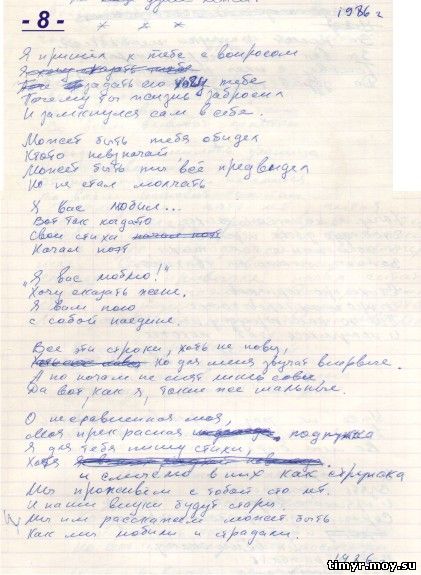 - 8 -
1986 г
* * *
Я пришёл к тебе с вопросом
Я хочу сказать тебе
задать его хочу тебе
Почему ты жизнь забросил
И замкнулся сам в себе.
Может быть тебя обидел
Ктото невзначай
Может быть ты всё предвидел
Но не стал молчать
Я вас любил...
Вот так когдато
Свои стиха начал поэт
Начал поэт
"Я вас люблю!"
Хочу сказать жене.
Я вам пою
с собой наедине.
Все эти строки, хоть не новы,
Но для меня звучат впервые.
А по ночам не спят лишь совы,
Да вот как я, такие же шальные.
О несравненная моя,
Моя прекрасная подружка
Я для тебя пишу стихи,
Хотя я
и смысла в них как стружка
Мы проживём с тобой сто лет.
И наши внуки будут стары.
Мы им расскажем может быть
Как мы любили и страдали.
1986
timyr.moy.su